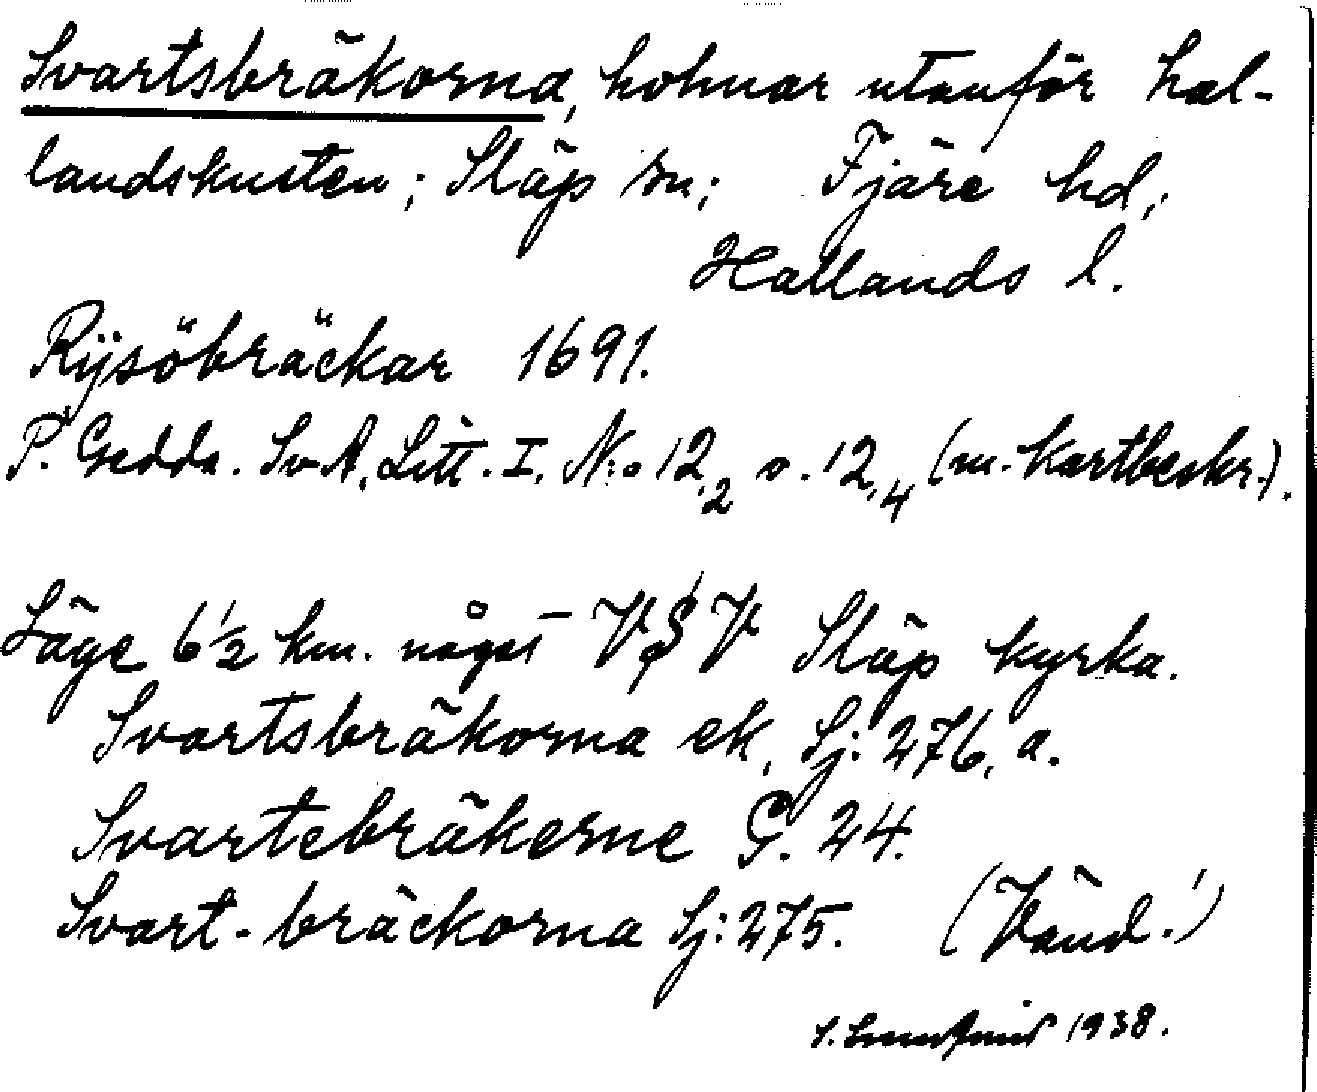 Svartsbräkorna, holmar utanför hal-
landskusten; Släp sn; Fjäre hd,
Hallands l.
Rÿsöbräckar 1691.
P. Gedda. Sv.A. Litt. I. N:o 12,2 o. 12,4 (m. kartbeskr.).
Läge 6 1/2 km. något VSV Släp kyrka.
Svartsbräkorna ek, Sj: 276, a.
Svartebräkerne G. 24.
Svart-bräckorna Sj: 275. (Vänd!)
1938.